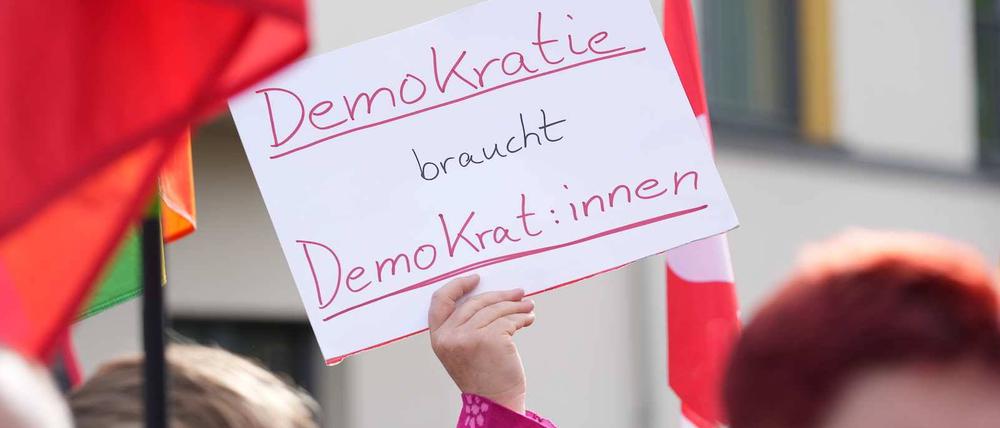 Demokratie
braucht
Demokrat:innen